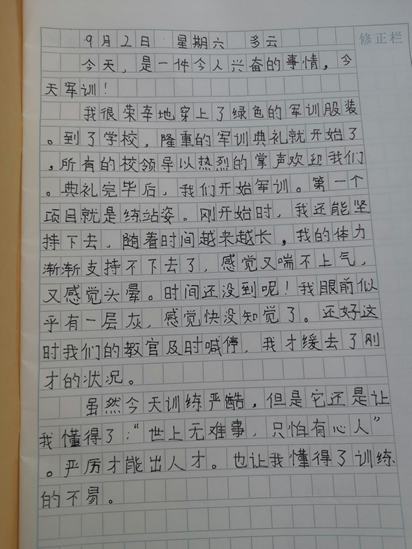 修正栏
9月2日 星期六 多云
今天,是一件令人兴奋的事情,今
天军训!
我很荣幸地穿上了绿色的军训服装
。到了学校,隆重的军训典礼就开始了
,所有的校领导以热烈的掌声欢迎我们
。典礼完毕后,我们开始军训。第一个
项目就是练站姿。刚开始时,我还能坚
持下去,随着时间越来越长,我的体力
渐渐支持不下去了,感觉又喘不上气,
又感觉头晕。时间还没到呢!我眼前似
乎有一层灰,感觉快没知觉了。还好这
时我们的教官及时喊停,我才缓去了刚
才的状况。
虽然今天训练严酷,但是它还是让
我懂得了:“世上无难事,只怕有心人”
。严厉才能出人才。也让我懂得了训练
的不易。